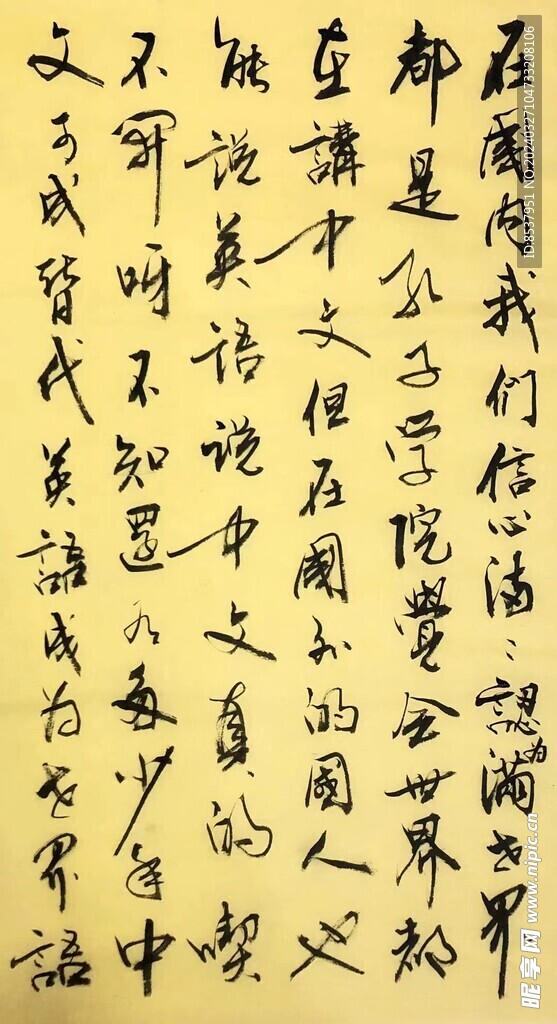 在國内我們信心滿〻認为滿世界
都是孔子学院覺全世界都
在講中文但在國外的國人也
能说英语说中文真的喫
不開呀不知還有多少年中
文可成替代英語成为世界語
ID:8537951 NO:20240327104733208106
昵享网 www.nipic.cn